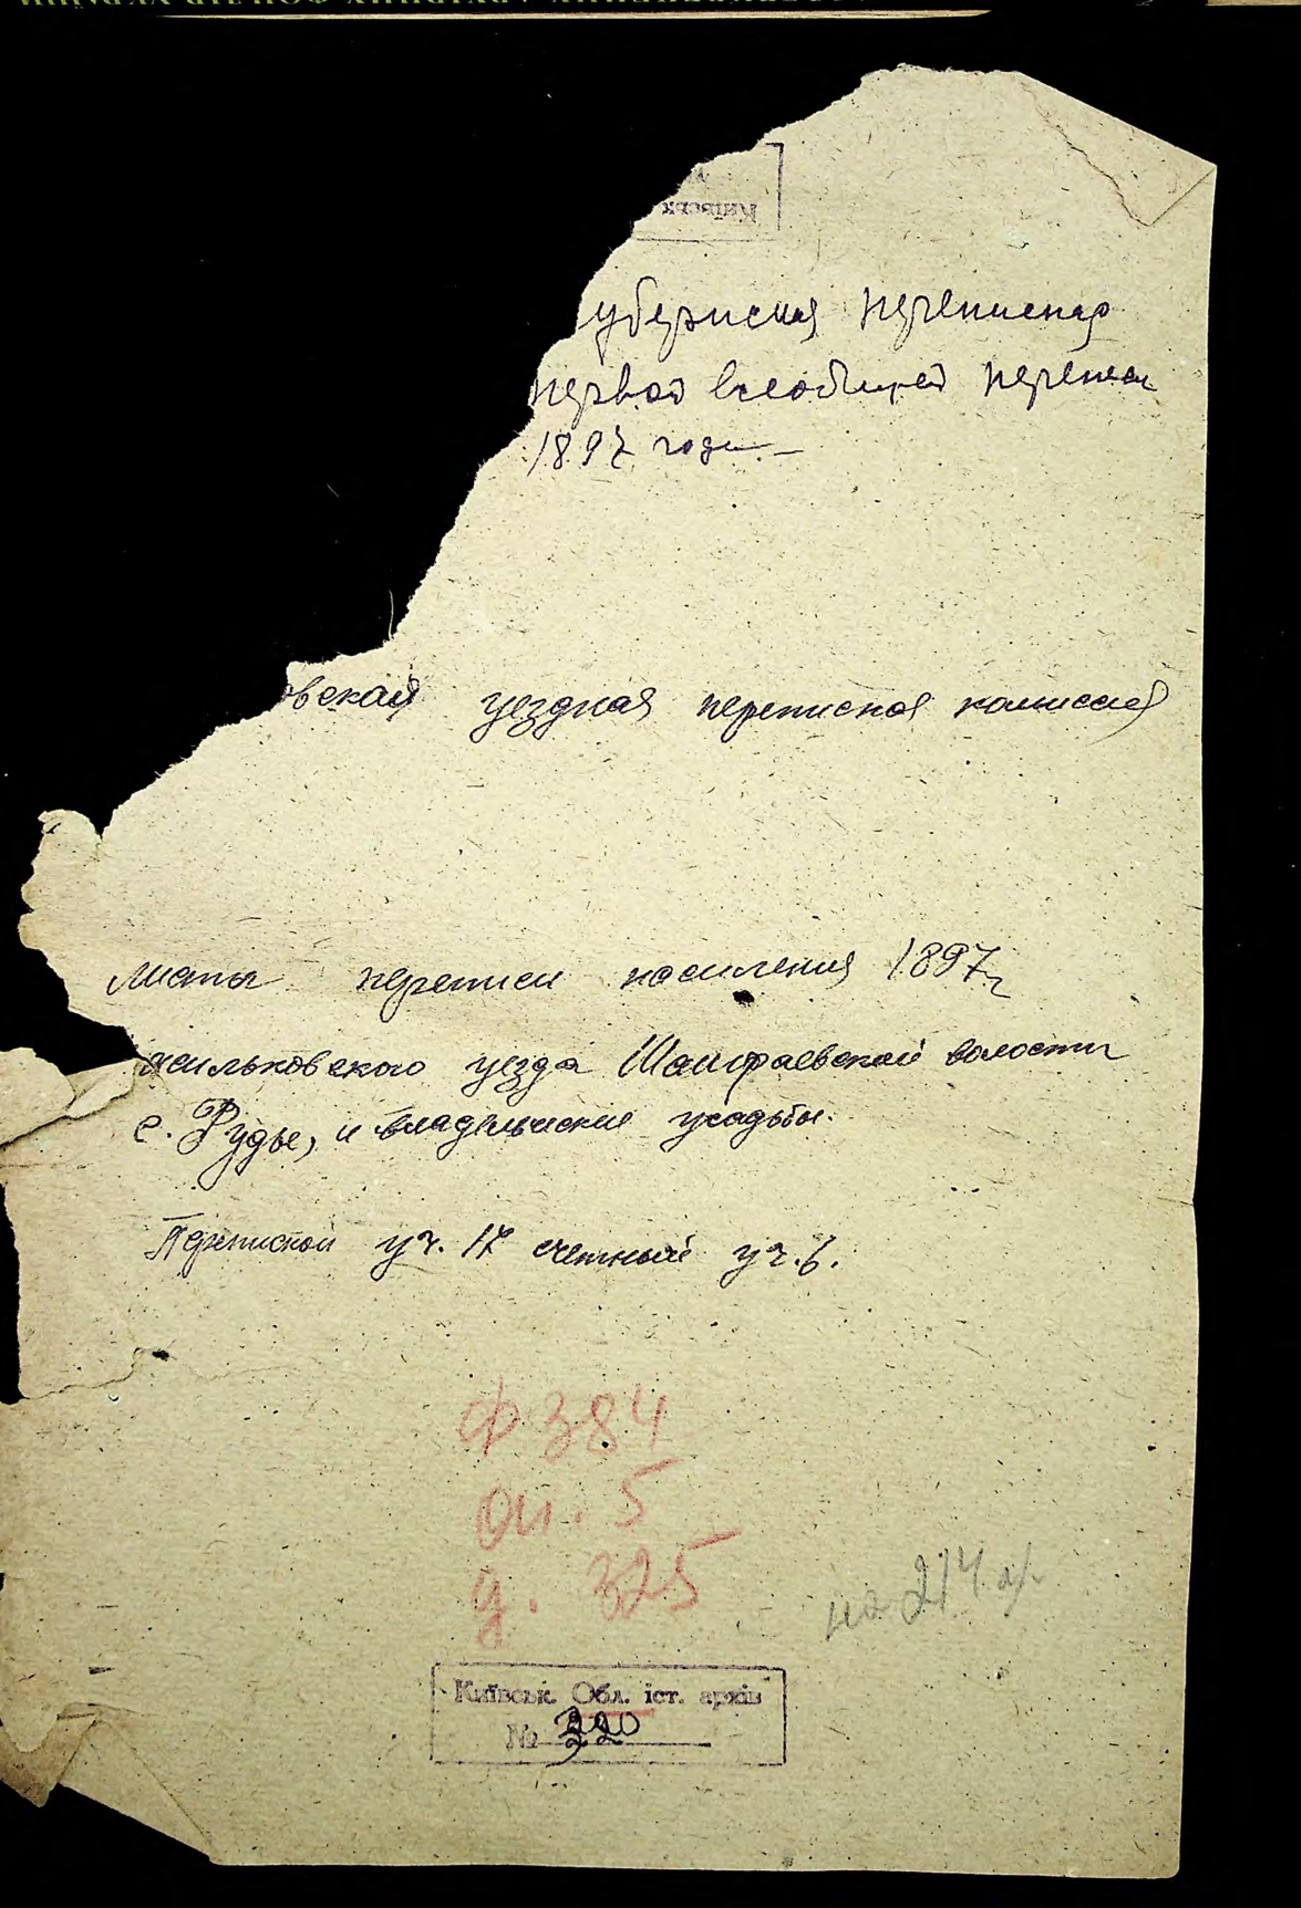 Київськ
убернская переписная
первой всеобщей переписи
1897 года.-
овская уездная переписная комиссия
Листы переписи населения 1897 г
асильковского уезда Шамраевской волости
с. Рудые, и владельческие усадьбы.
Переписной уч. 17 счетный уч. 6.
Ф 384
оп. 5
д. 325
на 214 л/
Київськ. Обл. іст. архів
№ 320